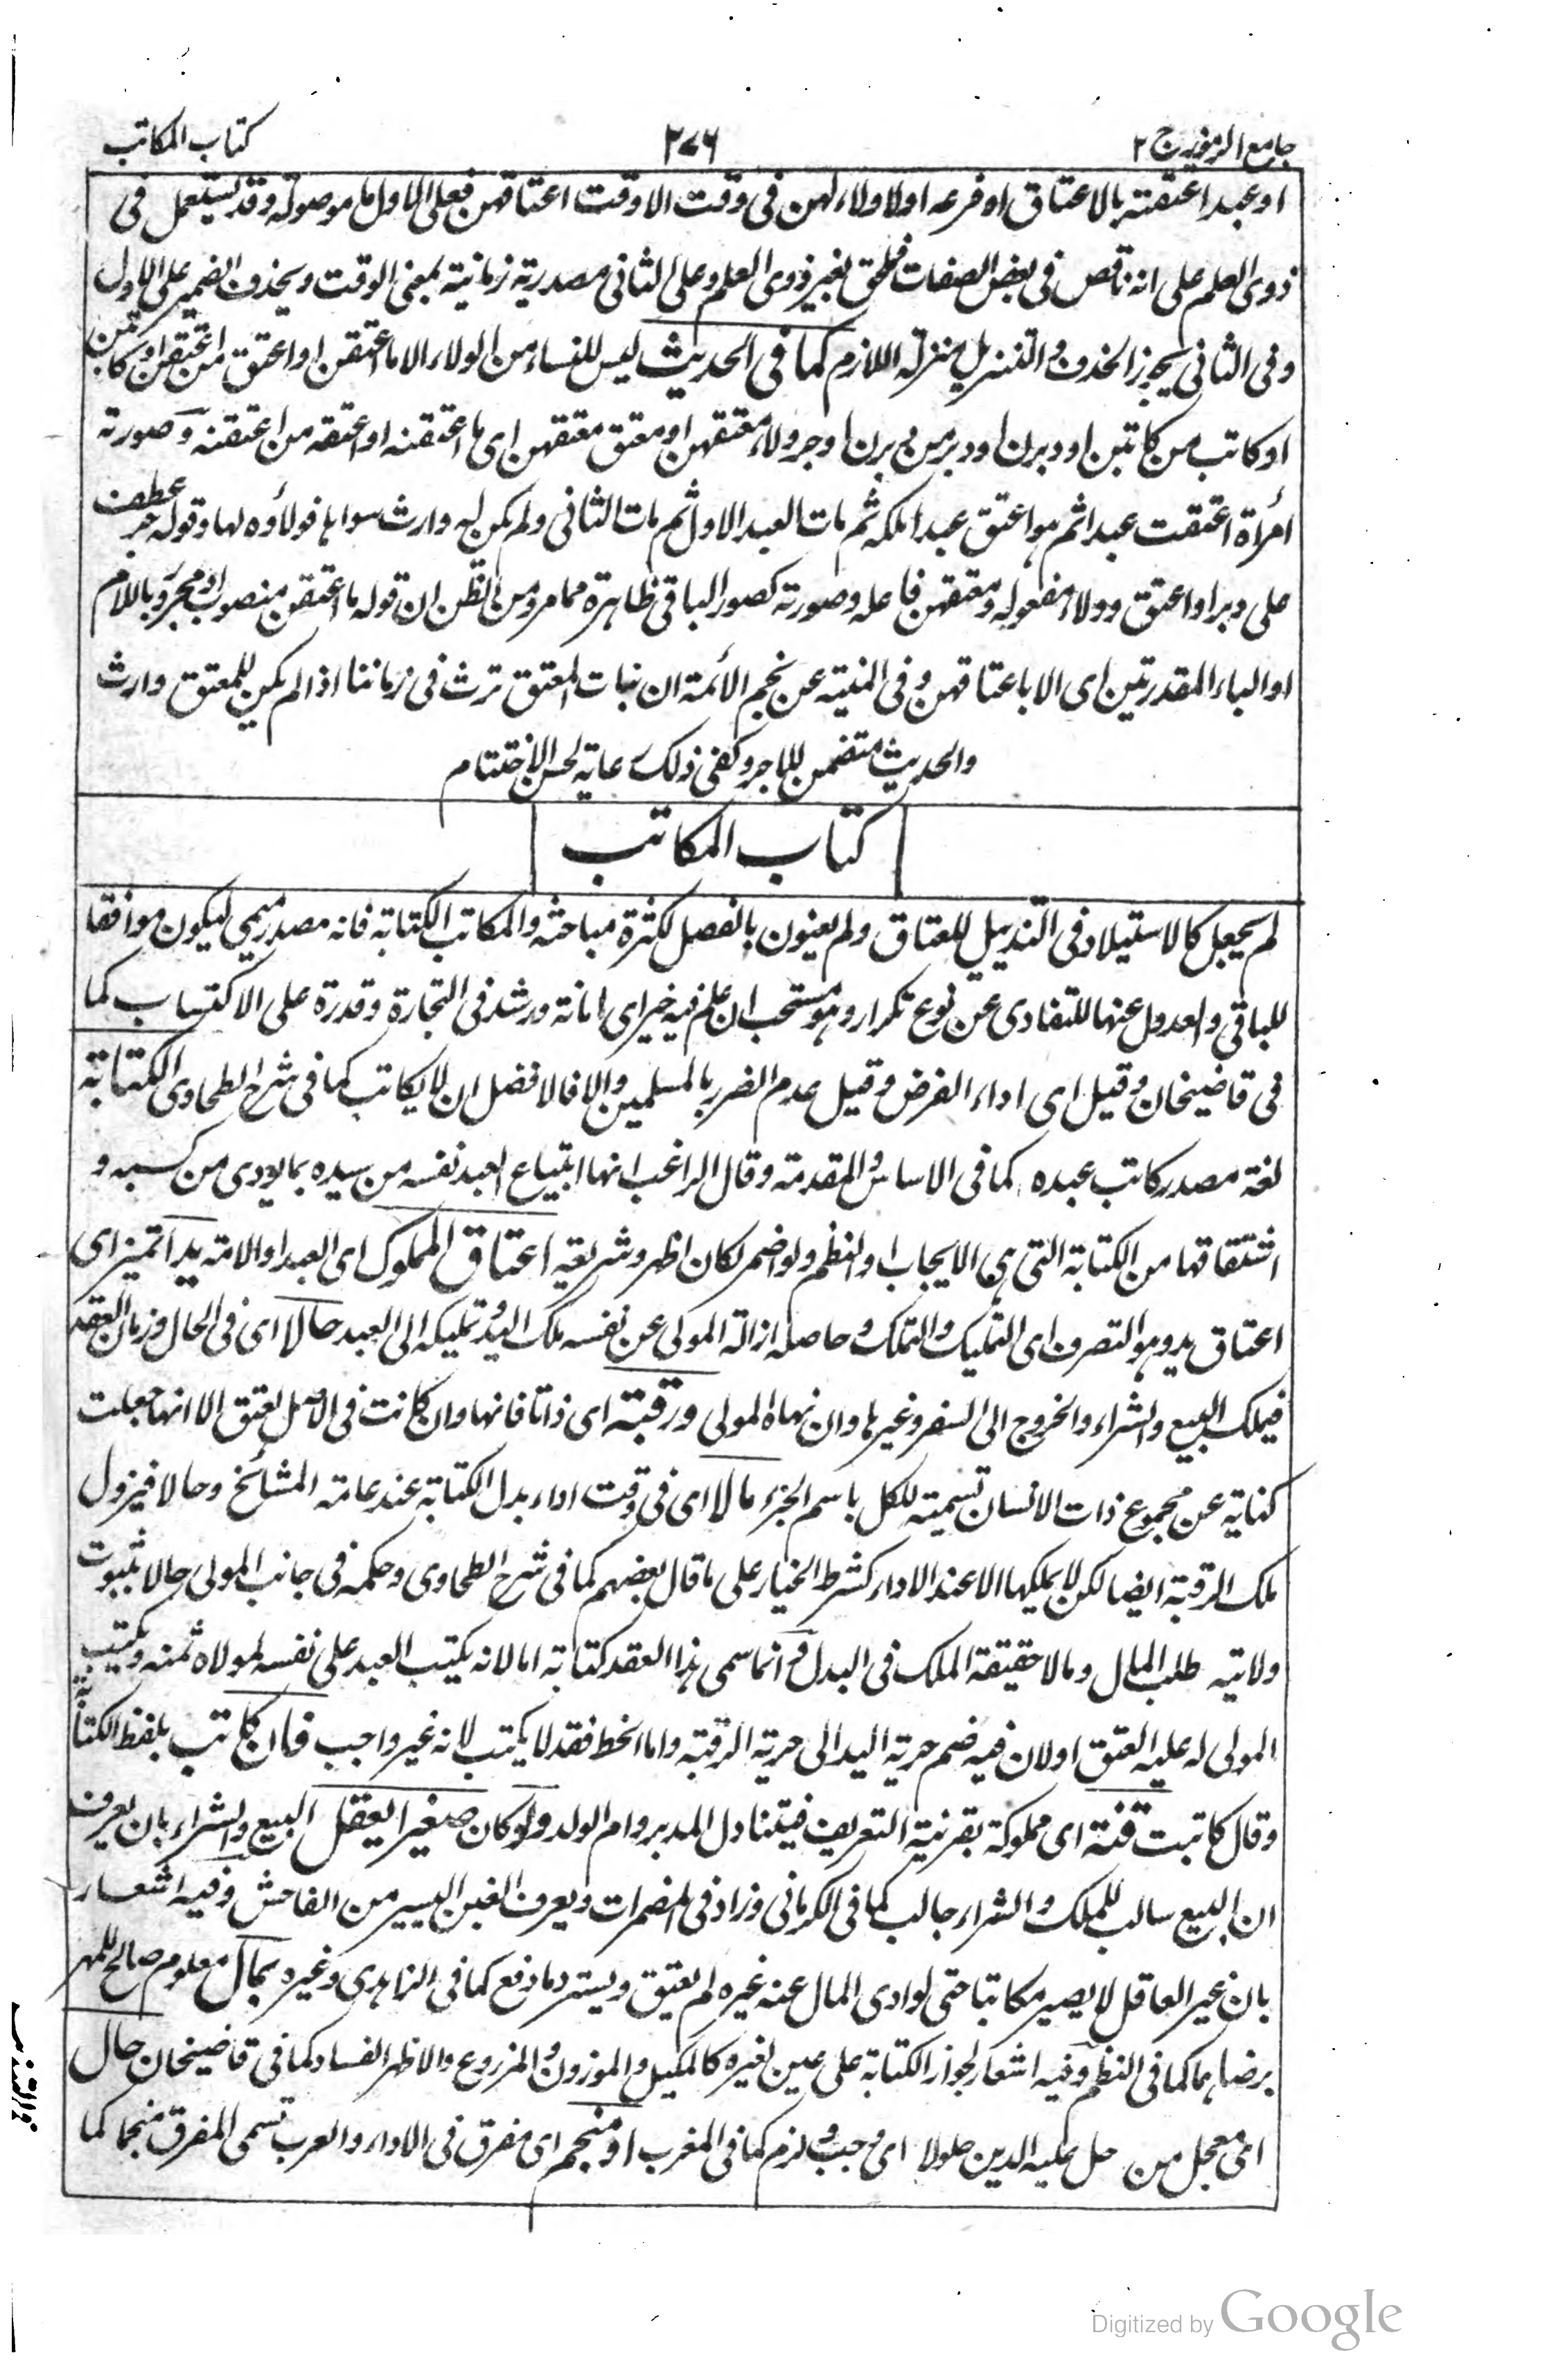 جامع الرموز ج ٢
٢٧٦
كتاب المكاتب
او عبدا اعتقته بالاعتاق او فرعه اولا ولاء لهن فى وقت الا وقت اعتاقهن فعلى الاول ما موصولة وقد يستعمل فى
ذوى العلم على انه ناقص فى بعض الصفات فلحق بغير ذوى العلم وعلى الثانى مصدرية زمانية بمعنى الوقت ويحذف الضمير على الاول
وفى الثانى يجوز الحذف والتنزيل منزلة اللازم كما فى الحديث ليس للنساء من الولاء الا ما اعتقن او اعتق من اعتقن او كاتبن
او كاتب من كاتبن او دبرن او دبر من دبرن او جر ولاء معتقهن او معتق معتقهن اى ما اعتقنه او اعتقه من اعتقنه وصورته
امرأة اعتقت عبدا ثم هو اعتق عبدا ملكه ثم مات العبد الاول ثم مات الثانى ولم يكن له وارث سواها فولاؤه لها وقوله جر عطف
على دبر او اعتق وولاء مفعوله ومعتقهن فاعله وصورته كصور الباقى ظاهرة مما مر ومن الظن ان قوله ما اعتقن منصوب او مجرور باللام
او الباء المقدرتين اى الا باعتاقهن وفى المنية عن نجم الأئمة ان بنات المعتق ترث فى زماننا اذا لم يكن للمعتق وارث
والحديث متضمن للاجر وكفى ذلك رعاية لحسن الاختتام
كتاب المكاتب
لم يجعل كالاستيلاد فى التذييل للعتاق ولم يعنون بالفصل لكثرة مباحثه والمكاتب الكتابة فانه مصدر ميمى ليكون موافقا
للباقى والعدول عنها للتفادى عن نوع تكرار وهو مستحب ان علم فيه خير اى امانة ورشد فى التجارة وقدرة على الاكتساب كما
فى قاضيخان وقيل اى اداء الفرض وقيل عدم الضرر بالمسلمين والا فالافضل ان لا يكاتب كما فى شرح الطحاوى الكتابة
لغة مصدر كاتب عبده كما فى الاساس والمقدمة وقال الراغب انها ابتياع العبد نفسه من سيده بما يودى من كسبه و
اشتقاقها من الكتابة التى هى الايجاب او النظم ولو اضمر لكان اظهر وشريعة اعتاق المملوك اى العبد او الامة يدا تميز اى
اعتاق يد وهو التصرف اى التمليك والتملك وحاصله ازالة المولى عن نفسه ملك اليد وتمليكه الى العبد حالا اى فى الحال وزمان العقد
فيملك البيع والشراء والخروج الى السفر وغيرها وان نهاه المولى ورقبة اى ذاتا فانها وان كانت فى الاصل لعتق الا انها جعلت
كناية عن مجموع ذات الانسان تسمية للكل باسم الجزء مالا اى فى وقت اداء بدل الكتابة عند عامة المشائخ وحالا فيزول
ملك الرقبة ايضا لكن لا يملكها الا عند الاداء كشرط الخيار على ما قال بعضهم كما فى شرح الطحاوى وحكمه فى جانب المولى حالا ثبوت
ولاية طلب المال ومالا حقيقة الملك فى البدل وانما سمى هذا العقد كتابة اما لانه يكتب العبد على نفسه لمولاه ثمنه ويكتب
المولى له عليه العتق او لان فيه ضم حرية اليد الى حرية الرقبة واما الخط فقد لا يكتب لانه غير واجب فان كاتب بلفظ الكتابة
وقال كاتبت قنه اى مملوكه بقرينة التعريف فيتناول المدبر وام الولد ولو كان صغيرا يعقل البيع والشراء بان يعرف
ان البيع سالب للملك والشراء جالب كما فى الكرمانى وزاد فى المضمرات ويعرف الغبن اليسير من الفاحش وفيه اشعار
بان غير العاقل لا يصير مكاتبا حتى لو ادى المال عنه غيره لم يعتق ويسترد ما دفع كما فى الزاهدى وغيره بمال معلوم صالح للمهر
برضاهما كما فى النظم وفيه اشعار لجواز الكتابة على عين لغيره كالمكيل والموزون والمزروع والاظهر الفساد كما فى قاضيخان حال
اى معجل من حل عليه الدين حلولا اى وجب ولزم كما فى المغرب او منجم اى مفرق فى الاداء والعرب تسمى المفرق منجما كما
Digitized by Google